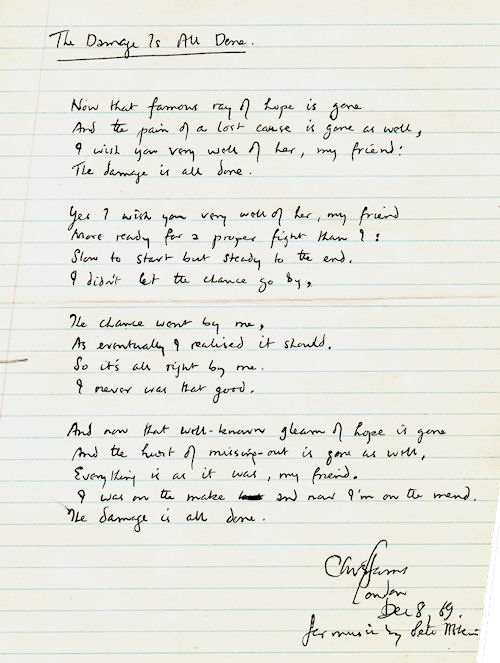 The Damage Is All Done.
Now that famous ray of hope is gone
And the pain of a lost cause is gone as well,
I wish you very well of her, my friend:
The damage is all done.
Yes I wish you very well of her, my friend
More ready for a proper fight than I:
Slow to start but steady to the end.
I didn't let the chance go by,
The chance went by me,
As eventually I realised it should.
So it's all right by me.
I never was that good.
And now that well-known gleam of hope is gone
And the hurt of missing-out is gone as well,
Everything is as it was, my friend.
I was on the make and now I'm on the mend.
The damage is all done.
London
Dec 8, 69.
for music by Pete